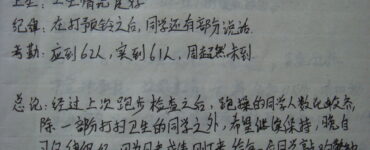 卫生：卫生情况良好
纪律：在打预铃之后，同学还有部分说话.
考勤：应到62人，实到61人，周超然未到
总论：经过上次跑步检查之后，跑操的同学人数比较齐，
除一部分打扫卫生的同学之外，希望继续保持，晚自